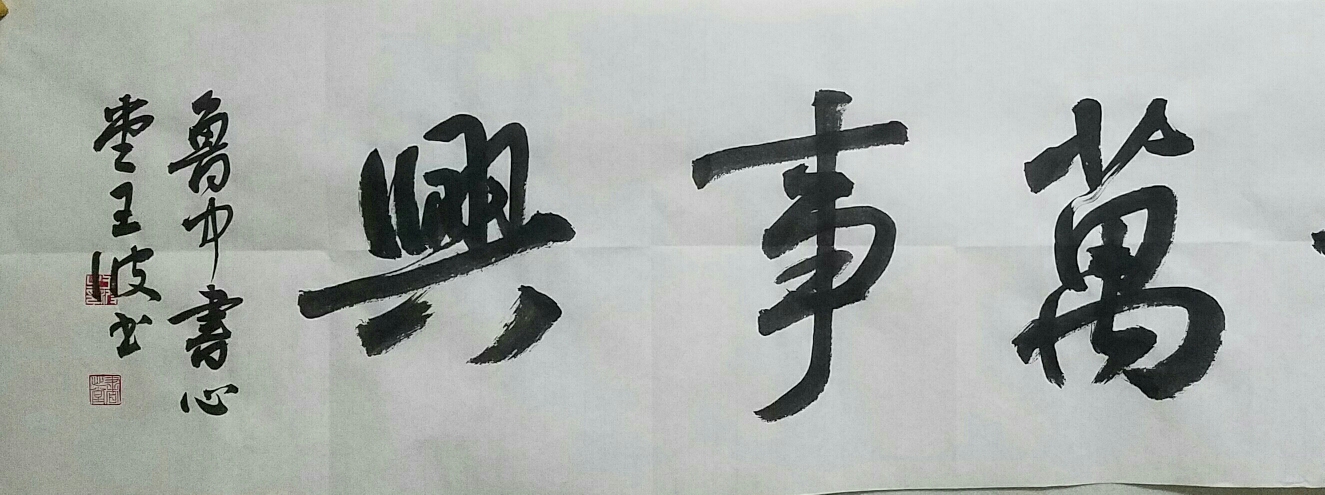 萬事興
魯中書心
堂王波书